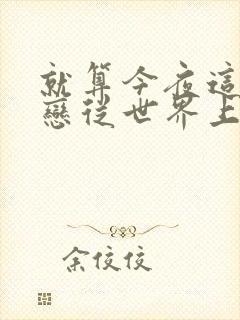 就算今夜這
戀從世界上
余佼佼